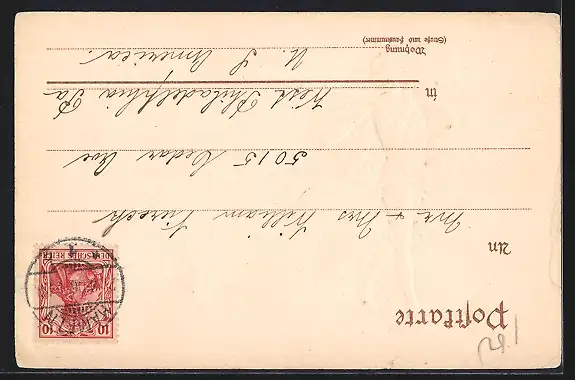 Postkarte
An
Mr. + Mrs William
5015 Cedar Ave
in West Philadelphia Pa
Wohnung
(Straße und Hausnummer)
U. S. America.
10 10
DEUTSCHES REICH